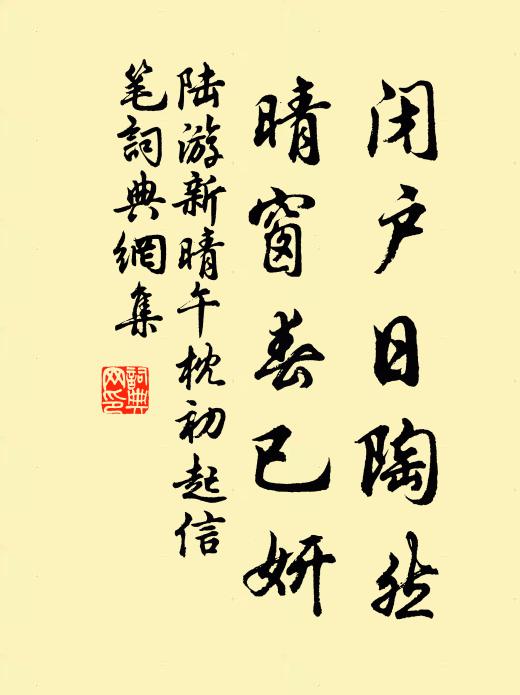 闭户日陶然
晴窗春已妍
陆游新晴午枕初起信
笔词典網集
詞典
网印